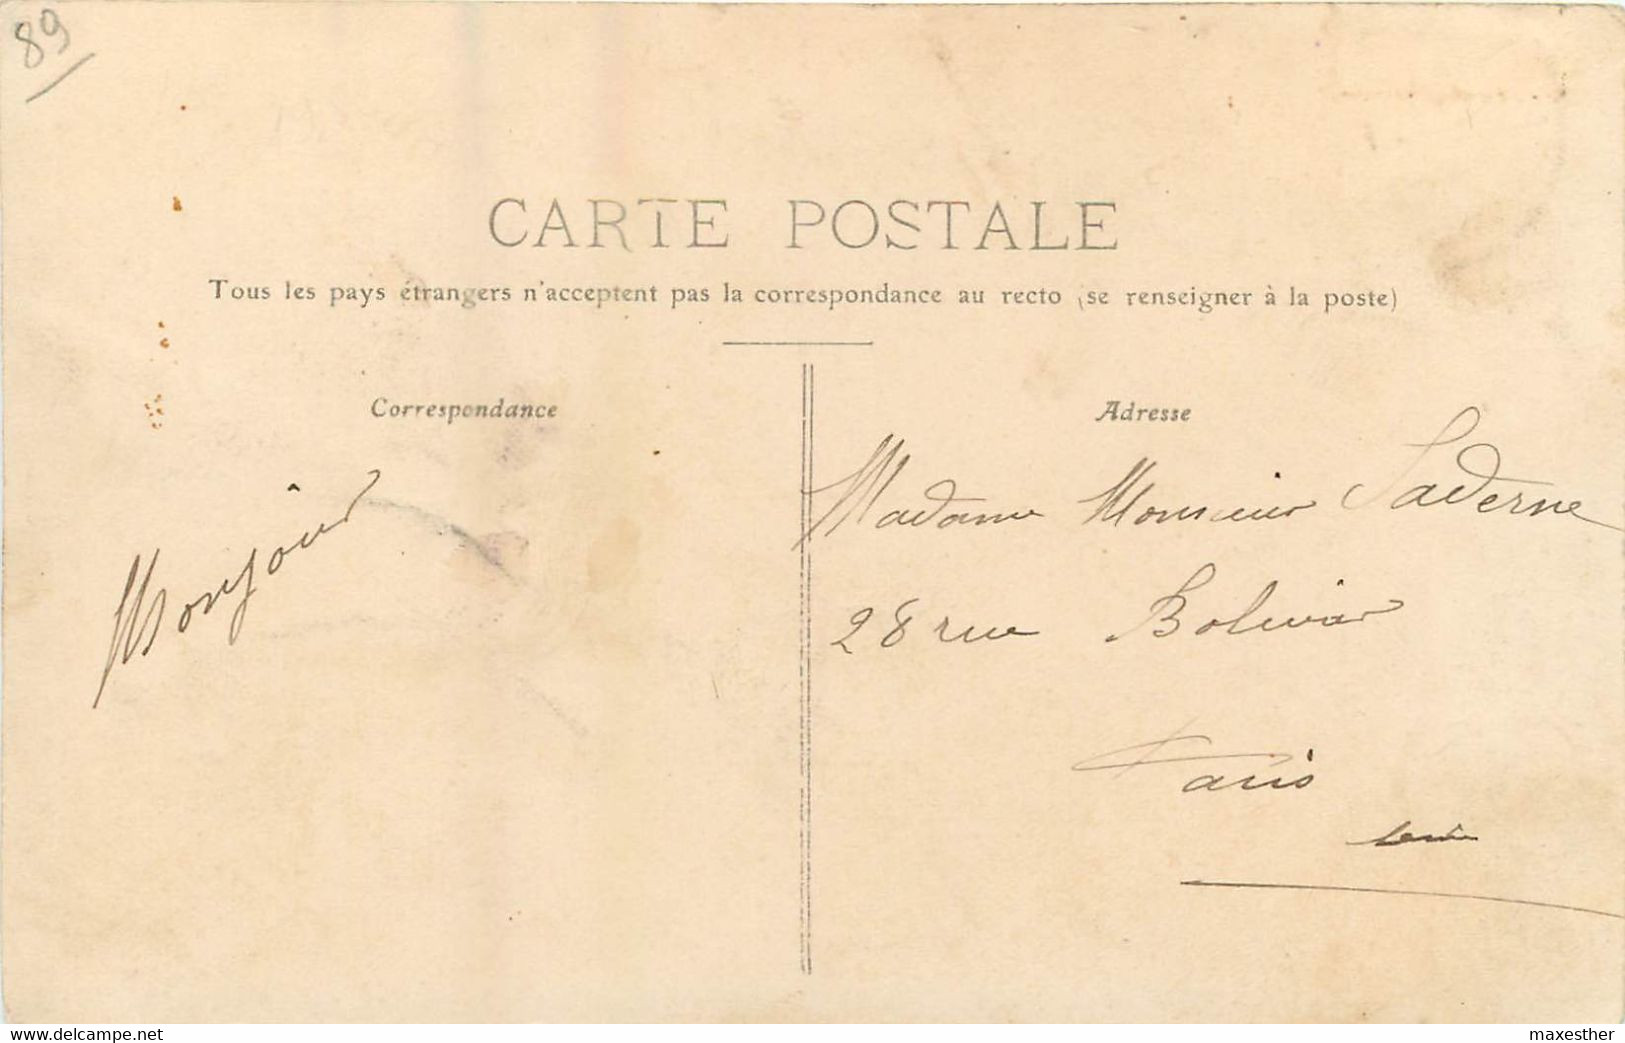 89
CARTE POSTALE
Tous les pays étrangers n'acceptent pas la correspondance au recto (se renseigner à la poste)
Correspondance
Adresse
Bonjour
Madame Monsieur Saderne
28 rue Bolivar
Paris
delcampe.net
maxesther